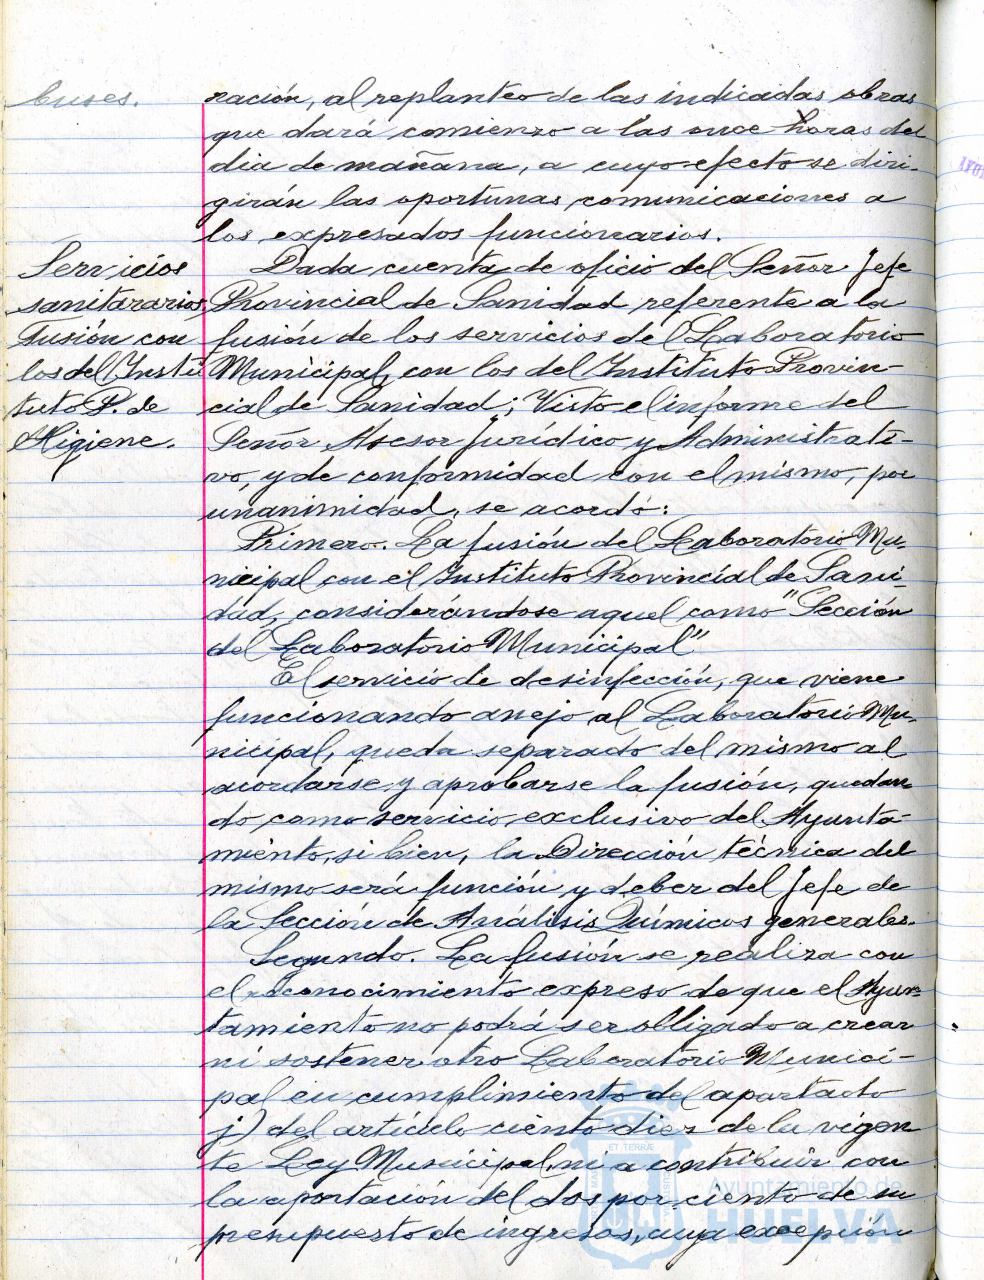 buses.
nación, al replanteo de las indicadas obras
que dará comienzo a las once horas del
dia de mañana, a cuyo efecto se diri-
girán las oportunas comunicaciones a
los expresados funcionarios.
Servicios
sanitararios,
Fusión con
los del Insti
tuto P. de
Higiene.
Dada cuenta de oficio del Señor Jefe
Provincial de Sanidad referente a la
fusión de los servicios del Laboratorio
Municipal, con los del Instituto Provin-
cial de Sanidad; Visto el informe del
Señor Asesor Jurídico y Administrati-
vo, y de conformidad con el mismo, por
unanimidad, se acordó:
Primero. La fusión del Laboratorio Mu-
nicipal con el Instituto Provincial de Sani-
dad, considerándose aquel como "Sección
del Laboratorio Municipal"
El servicio de desinfección, que viene
funcionando anejo al Laboratorio Mu-
nicipal, queda separado del mismo al
acordarse y aprobarse la fusión, quedan
do como servicio exclusivo del Ayunta-
miento, si bien, la Dirección técnica del
mismo será función y deber del Jefe de
la Sección de Análisis Químicos generales.
Segundo. La fusión se realiza con
el reconocimiento expreso de que el Ayun-
tamiento no podrá ser obligado a crear
ni sostener otro Laboratorio Munici-
pal en cumplimiento del apartado
j) del artículo ciento diez de la vigen
te Ley Municipal, ni a contribuir con
la aportación del dos por ciento de su
presupuesto de ingresos, cuya excepción
ET TERRÆ
Ayuntamiento de
HUELVA